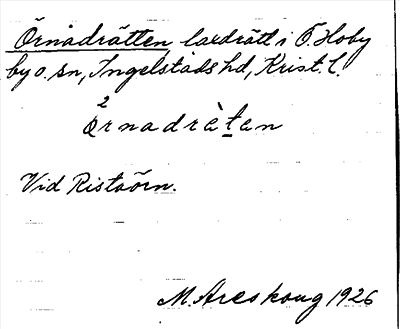 Örnadrätten laxdrätt i Ö. Hoby
by o. sn, Ingelstads hd, Krist. l.
2
Örnadrètan
Vid Ristaörn.
M. Areskoug 1926